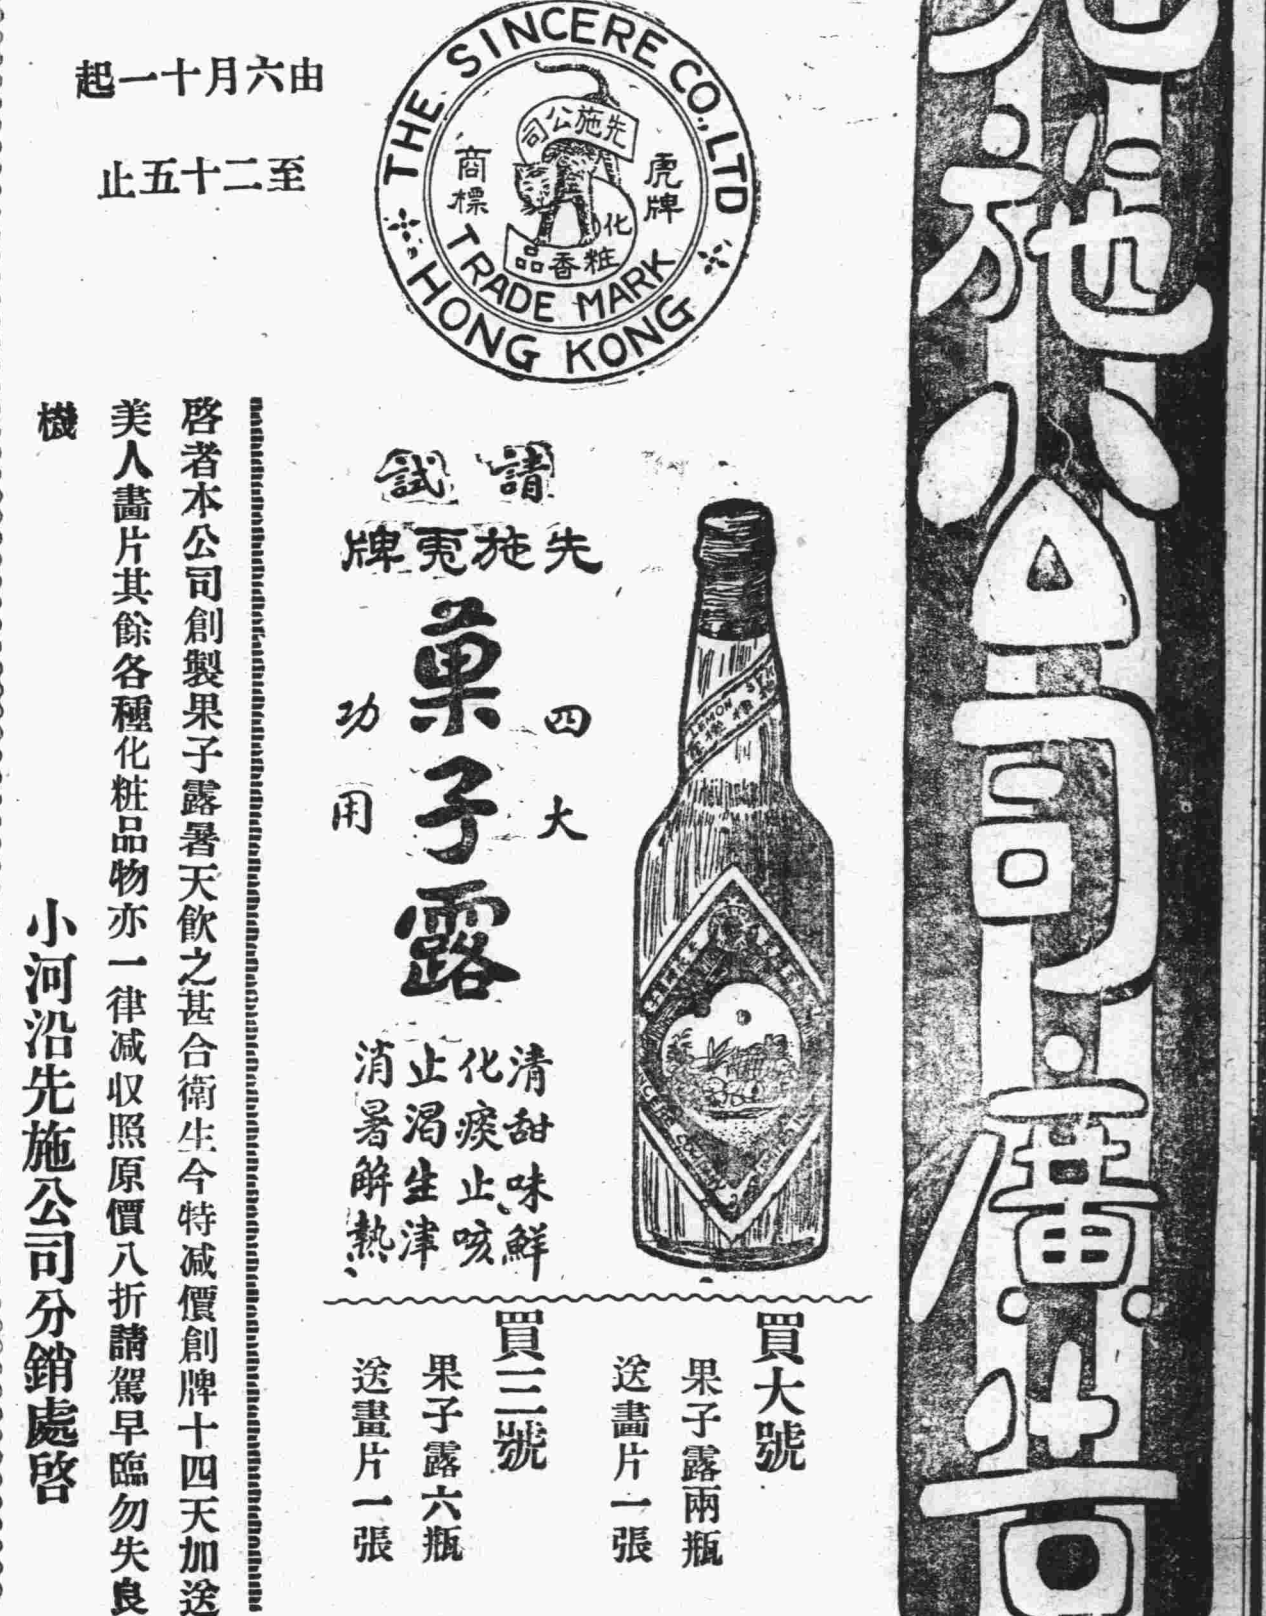 先施公司廣告
THE SINCERE CO., LTD
HONG KONG
TRADE MARK
先施公司
虎牌
商標
化粧香品
請試
先施虎牌
菓子露
四大
功用
清甜味鮮
化痰止咳
止渴生津
消暑解熱
LEMON
買大號
果子露兩瓶
送畫片一張
買三號
果子露六瓶
送畫片一張
由六月十一起
至二十五止
啓者本公司創製果子露暑天飲之甚合衛生今特減價創牌十四天加送
美人畫片其餘各種化粧品物亦一律減收照原價八折請駕早臨勿失良
機
小河沿先施公司分銷處啓